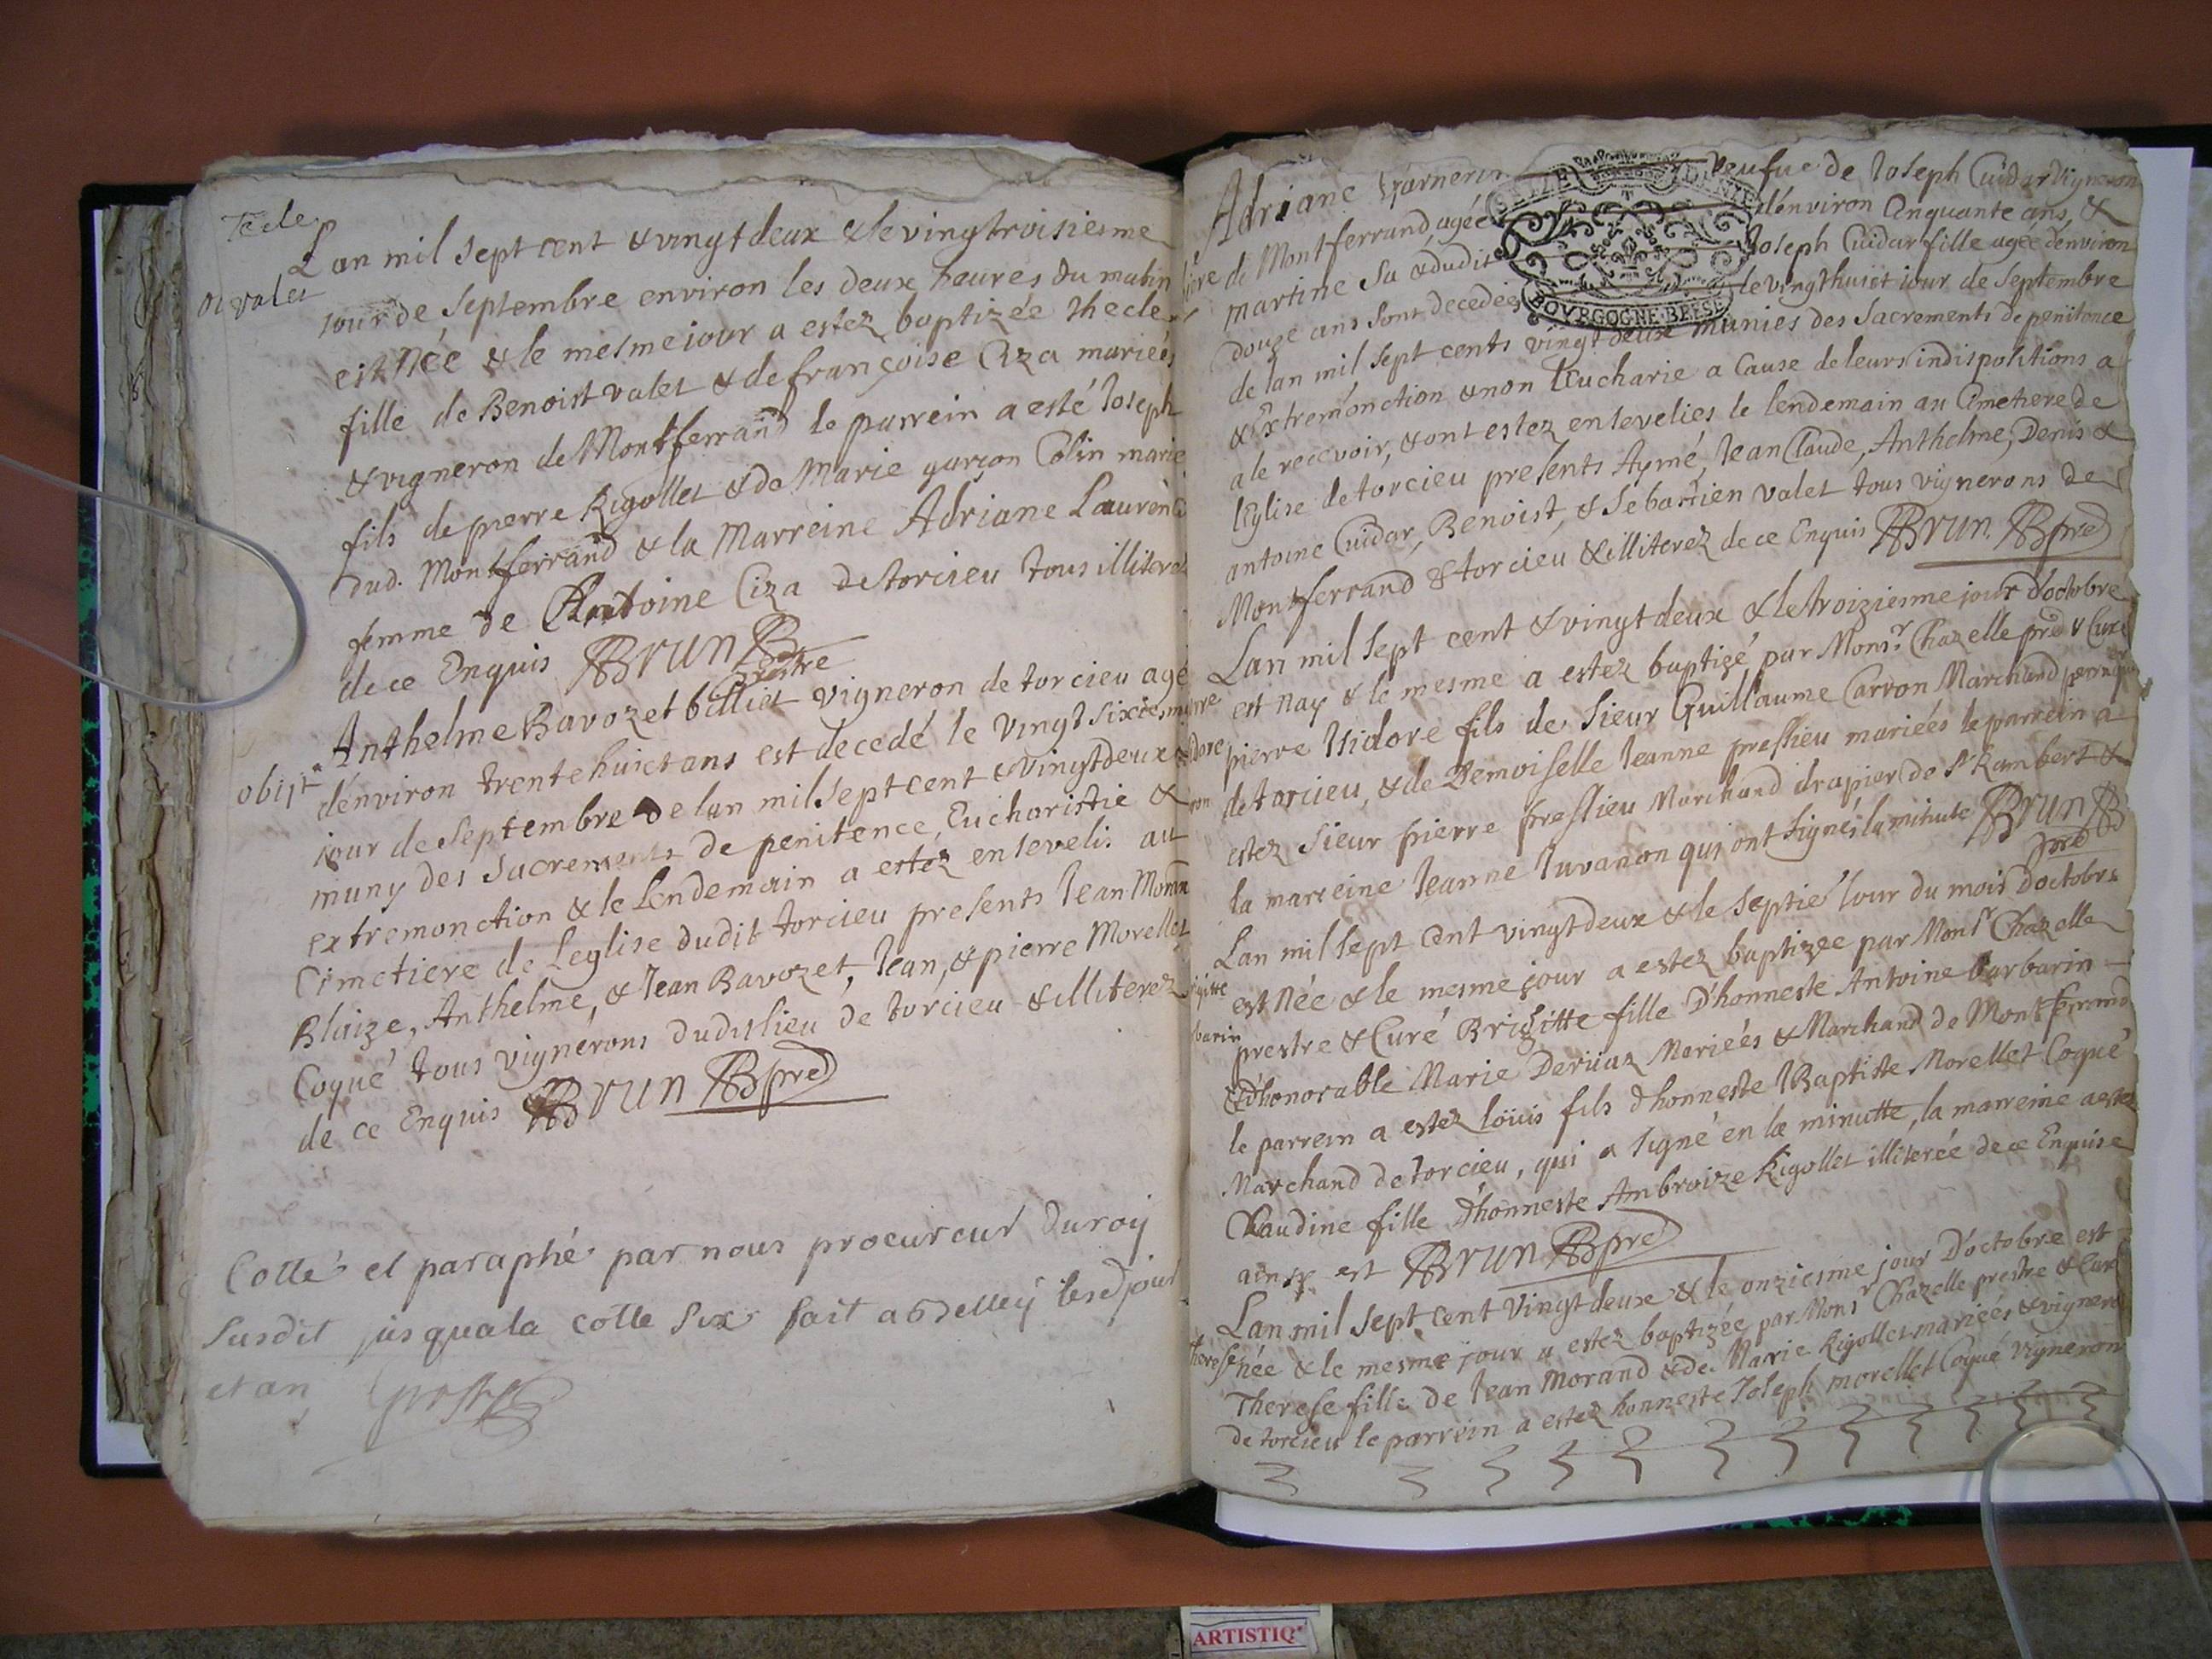 Tecle
valet
Lan mil sept cent & vingt deux & le vingtroisiesme
iour de Septembre environ les deux heures du matin
est Née & le mesme iour a estez baptizée thecle
fille de Benoist valet & de françoise Ciza mariées
& vigneron de Montferrand le parrein a esté Ioseph
fils de pierre Rigollet & de Marie garçon Colin marie
dud. Montferrand & la Marreine Adriane Laurend
femme de Antoine Ciza de torcieu tous illiterez
de ce Enquis Brun
prestre
Anthelme Bavozet billiet vigneron de torcieu agé
obijt
d'environ trente huict ans est decedé le vingt sixiesme
iour de Septembre de lan mil sept cent & vingt deux
muny des Sacrements de penitence, Eucharistie &
extremonction & le Lendemain a estez ensevelis au
Cimetiere de Leglise dudit torcieu presents Iean Moran
Blaize, Anthelme, & Iean Bavozet, Iean, & pierre Morellet
Coqué tous vignerons dudit lieu de torcieu & illiterez
de ce Enquis Brun pre
Cotté et paraphé par nous procureur du roy
susdit jusqua la cotte Six fait a belley lesd jour
et an
Adriane Garnerin veufue de Ioseph Cuidar Vigneron
de Montferrand, agée d'environ Cinquante ans, &
martine sa & dudit Ioseph Cuidar fille agée d'environ
douze ans sont decedées le vingthuict iour de Septembre
de lan mil sept cents vingt deux munies des Sacrements de penitence
& Extremonction & non L'Eucharie a Cause de leurs indispositions a
a le recevoir, & ont estez ensevelies le lendemain au Cimetiere de
l'Eglise de torcieu presents Aymé, Iean Claude, Anthelme, Denis &
antoine Cuidar, Benoist, & Sebastien valet tous vignerons de
Montferrand & torcieu & illiterez de ce Enquis Brun pre
Lan mil sept cent & vingt deux & le troiziesme jour d'octobre
est nay & le mesme a estez baptizé par Monsr. Chazelle pre & Curé
pierre Isidore fils de Sieur Guillaume Carron Marchand
de torcieu, & de Demoiselle Ieanne preslieu mariées le parrein a
estez Sieur pierre preslieu Marchand drapier de St Rambert &
la marreine Ieanne Iuvanon qui ont Signés la minute Brun
pre
Lan mil sept cent vingt deux & le septié Iour du mois d'octobre
est Née & le mesme jour a estez baptizée par Monsr Chazelle
barin
prestre & Curé Brigitte fille D'honneste Antoine barbarin
& d'honorable Marie Deriiaz Mariéés & Marchand de Montferrand
le parrein a estez loüis fils d'honneste IBaptiste Morellet Coqué
Marchand de torcieu, qui a signé en la minutte, la marreine a estez
Claudine fille D'honneste Ambroize Rigollet illiterée de ce Enquise
ainsy est Brun pre
Lan mil sept cent vingt deux & le onziesme jour D'octobre est
therese
née & le mesme jour a estez baptizée par Monsr Chazelle prestre & Curé
Therese fille de Iean Morand & de Marie Rigollet mariéés & vigneron
de torcieu le parrein a estez honneste Ioseph morellet Coqué vigneron
BOURGOGNE BRESSE
ARTISTIQ